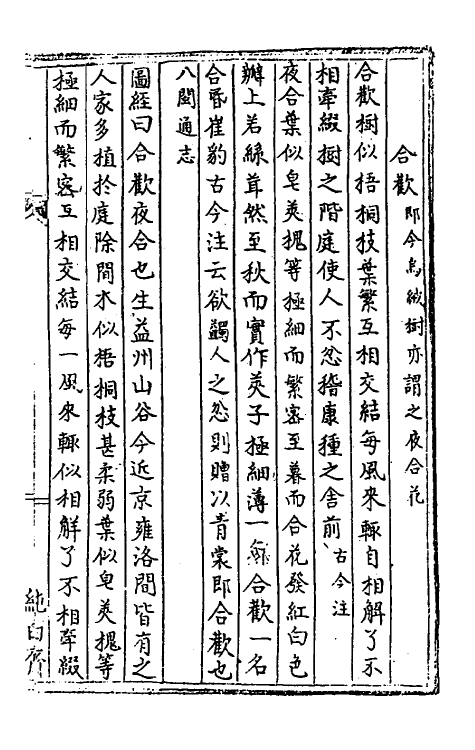 合歡即今烏絨樹亦謂之夜合花
合歡樹似梧桐枝葉繁互相交結每風來輒自相解了不
相牽綴樹之階庭使人不忿嵇康種之舍前古今注
夜合葉似皂莢槐等極細而繁密至暮而合花發紅白色
瓣上若絲茸然至秋而實作莢子極細薄一名合歡一名
合昏崔豹古今注云欲蠲人之忿則贈以青棠即合歡也
八閩通志
圖經曰合歡夜合也生益州山谷今近京雍洛間皆有之
人家多植於庭除間木似梧桐枝甚柔弱葉似皂莢槐等
極細而繁密互相交結每一風來輒似相解了不相牽綴
純白齋